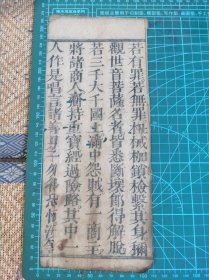 若有罪若無罪杻械枷鎖檢繫其身稱
觀世音菩薩名者皆悉斷壞即得解脫
若三千大千國土滿中怨賊有一商主
將諸商人齎持重寶經過險路其中一
人作是唱言諸善男子勿得恐怖汝等